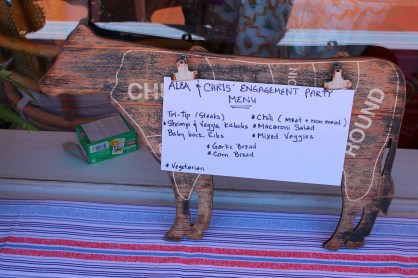 ALEA & CHRIS' ENGAGEMENT PARTY
MENU
Tri-Tip (steaks)
* Shrimp & Veggie Kabobs
Baby back Ribs
* Chili (meat + non-meat)
* Macaroni Salad
* Mixed Veggies
* Garlic Bread
* Corn Bread
* Vegetarian
CH
ROUND